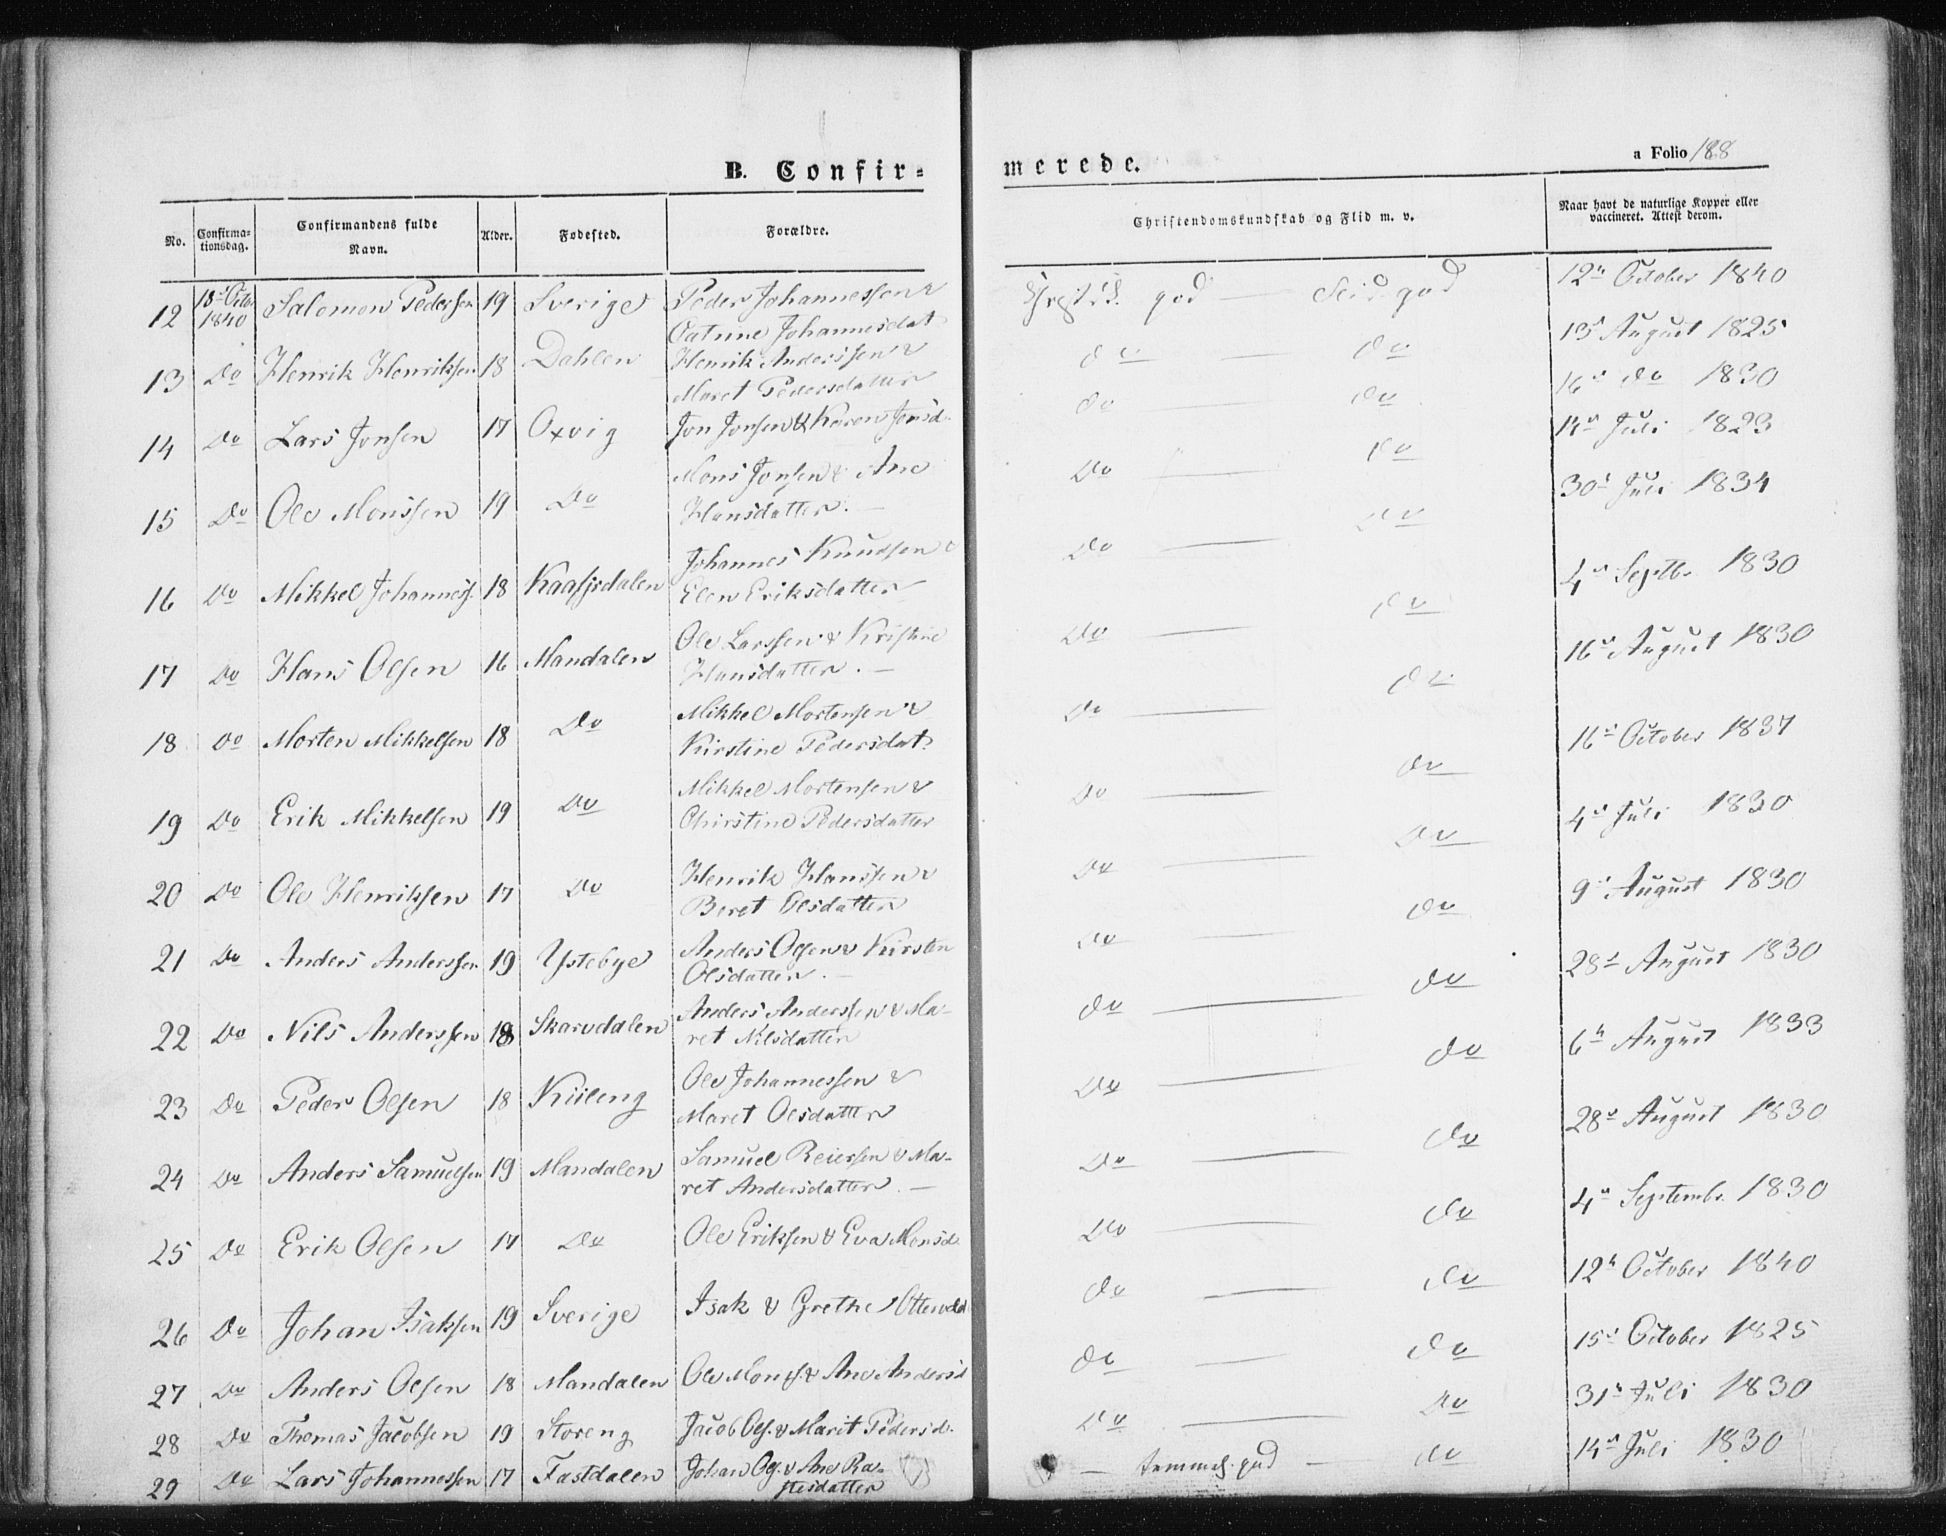 B. Confir-
merede.
a Folio 188
No.
Confirma-
tionsdag.
Confirmandens fulde
Navn.
Alder.
Fødested.
Forældre.
Christendomskundskab og Flid m. v.
Naar havt de naturlige Kopper eller
vaccineret. Attest derom.
12 18de Octbr 1840 Salomon Pedersen 19 Sverige Peder Johannessen &
Catrine Johannesdat god god 12te October 1840
13 Do Henrik Henriksen 18 Dahlen Henrik Anderssen &
Maret Pedersdatter do do 13de August 1825
14 Do Lars Jonsen 17 Oxvig Jon Jonsen & Karen Jonsd. do do 16de do 1830
15 Do Ole Monssen 19 Do Mons Jonsen & Ane
Hansdatter. Do do 14de Juli 1823
16 Do Mikkel Johanness. 18 Kaafjrdalen Johannes Knudsen &
Elen Eriksdatter Do do 30te Juli 1834
17 Do Hans Olsen 16 Mandalen Ole Larssen & Kristine
Hansdatter. Do do 4de Septbr 1830
18 do Morten Mikkelsen 18 Do Mikkel Mortensen &
Kirstine Pedersdat. Do do 16de August 1830
19 Do Erik Mikkelsen 19 Do Mikkel Mortensen &
Chirstine Pedersdatter Do do 16de October 1837
20 Do Ole Henriksen 17 Do Henrik Hanssen &
Beret Olsdatter Do do 4de Juli 1830
21 Do Anders Anderssen 19 Ystebye Anders Olsen & Kirsten
Olsdatter. Do do 9de August 1830
22 Do Nils Anderssen 18 Skarvdalen Anders Anderssen & Ma-
ret Nilsdatter do do 28de August 1830
23 Do Peder Olsen 18 Kiileng Ole Johannessen &
Maret Olsdatter Do do 6te August 1833
24 Do Anders Samuelsen 19 Mandalen Samuel Reiersen & Ma-
ret Andersdatter. Do do 28de August 1830
25 Do Erik Olsen 17 Do Ole Eriksen & Eva Monsd. Do do 4de Septembr. 1830
26 Do Johan Isaksen 19 Sverige Isak & Grethe do do 12te October 1840
27 Do Anders Olsen 18 Mandalen Ole Mons. & Ane Andersd do do 15de October 1825
28 Do Thomas Jacobsen 19 Storeng Jacob Ols. & Marit Pedersd. Do do 31te Juli 1830
29 Do Lars Johannessen 17 Fastdalen Johan Ol. & Ane Ra-
stesdatter temmel. god do 14de Juli 1830